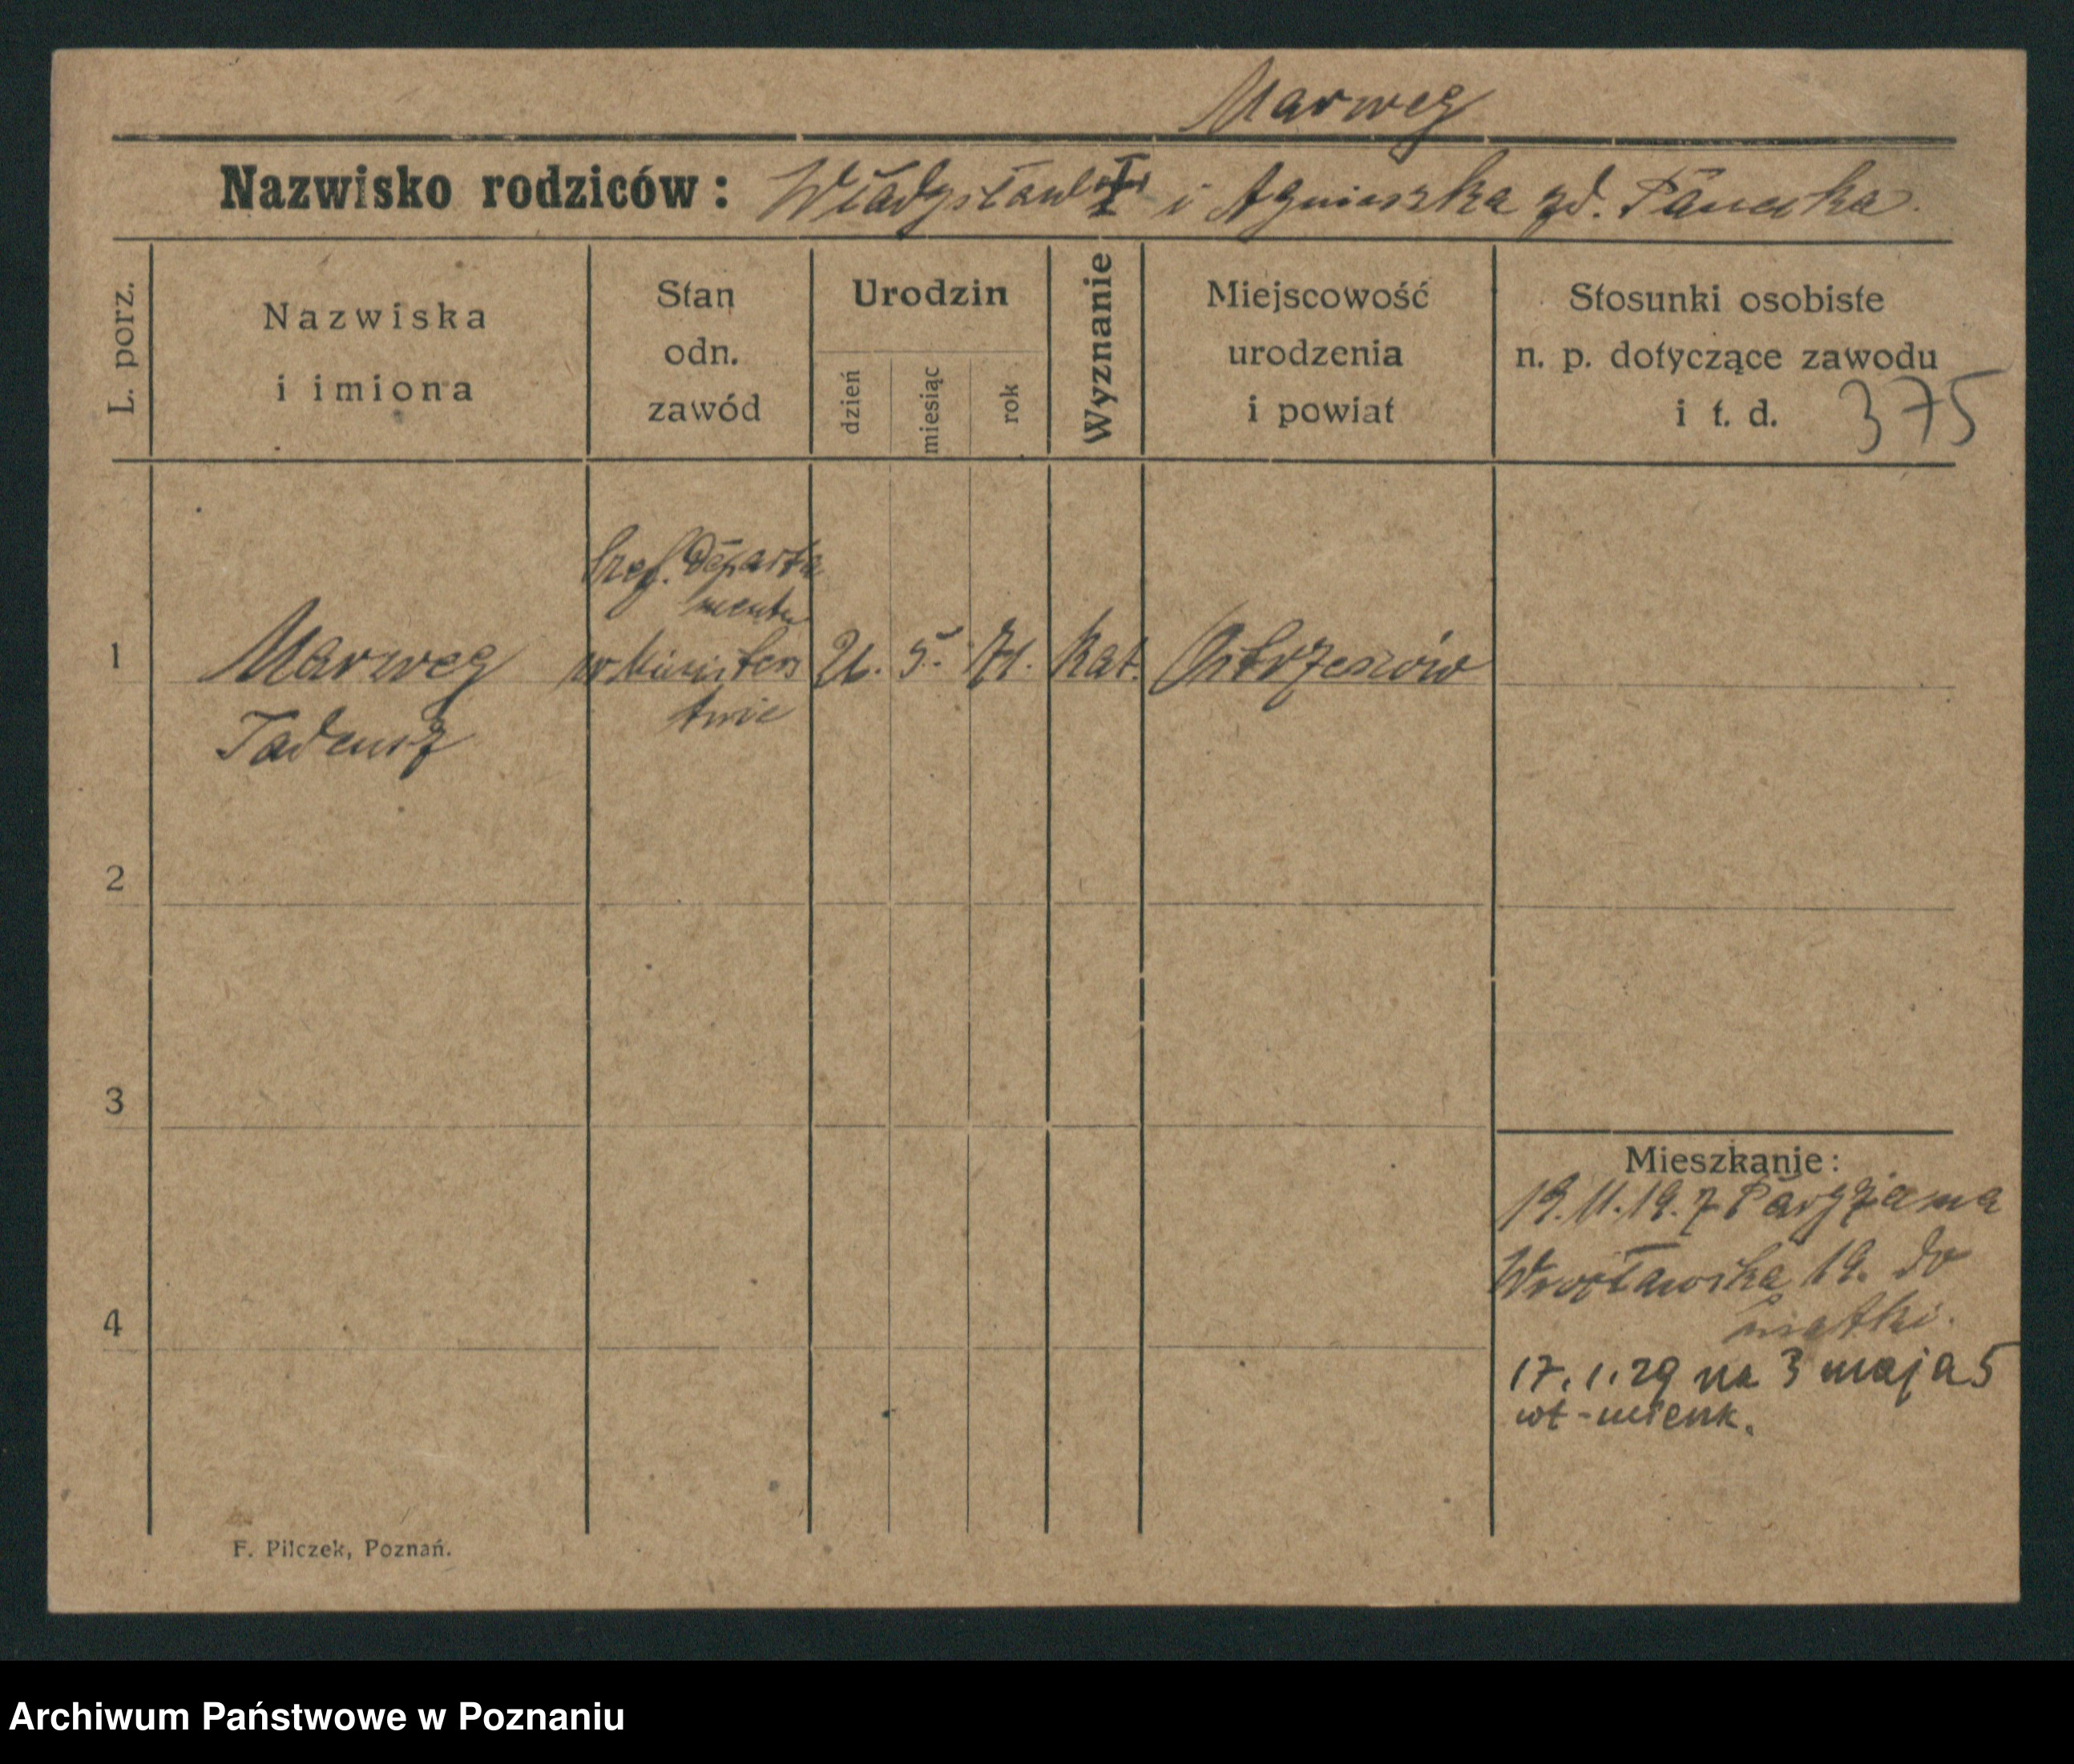 Marweg
Nazwisko rodziców: Władysław i Agnieszka zd.
L. porz.
Nazwiska
i imiona
Stan
odn.
zawód
Urodzin
dzień
miesiąc
rok
Wyznanie
Miejscowość
urodzenia
i powiat
Stosunki osobiste
n. p. dotyczące zawodu
i t. d.
375
1
Marweg
Tadeusz
Departa
mentu
w Minister
twie
5.
Kat.
Ostrzeszów
2
3
4
Mieszkanie:
19.11.19. z
Wrocławska 19. do
matki.
17.1.29 na 3 maja 5
wł-mieszk.
F. Pilczek, Poznań.
Archiwum Państwowe w Poznaniu